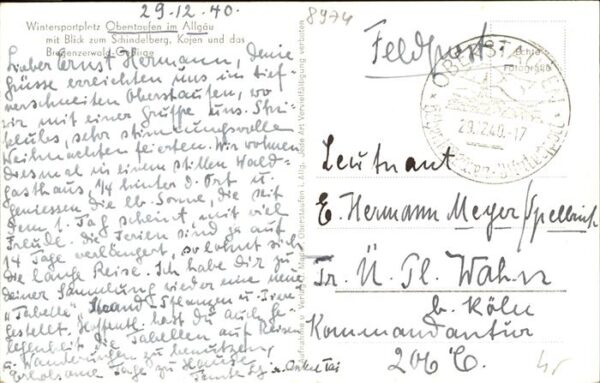 29.12.40.
8974
Wintersportplatz Oberstaufen im Allgäu
mit Blick zum Schindelberg, Kojen und das
Bregenzerwald-Gebirge
Lieber Ernst Hermann, Deine
Grüsse erreichten uns im tief-
verschneiten Oberstaufen, wo
wir mit einer Gruppe uns. Ski-
klubs, sehr stimmungsvolle
Weihnachten feierten. Wir wohnen
diesmal in einem stillen Wald-
gasthaus, hinter d. Ort u.
geniessen die lb. Sonne, die seit
dem 1. Tag scheint, mit viel
Freude. die Ferien sind ja auf
14 Tage verlängert, so lohnt sich
die lange Reise. Ich habe dir zu
deiner Sammlung wieder eine neue
"Tabelle" Strand-Pflanzen u. Tiere
gestellt. Hoffentl. hast du auch Ge-
legenheit die Tabellen auf Reisen
u. Wanderungen zu benutzen,
Erholsame Tage zu Hause
Tante u. Onkel
Feldpost.
Echte
Fotografie
OBERSTAUFEN
29.12.40.-17
Leutnant
E. Hermann Meyer/Spellbrink
Tr. Ü. Pl. Wahn
b. Köln
Kommandantur
206 C.